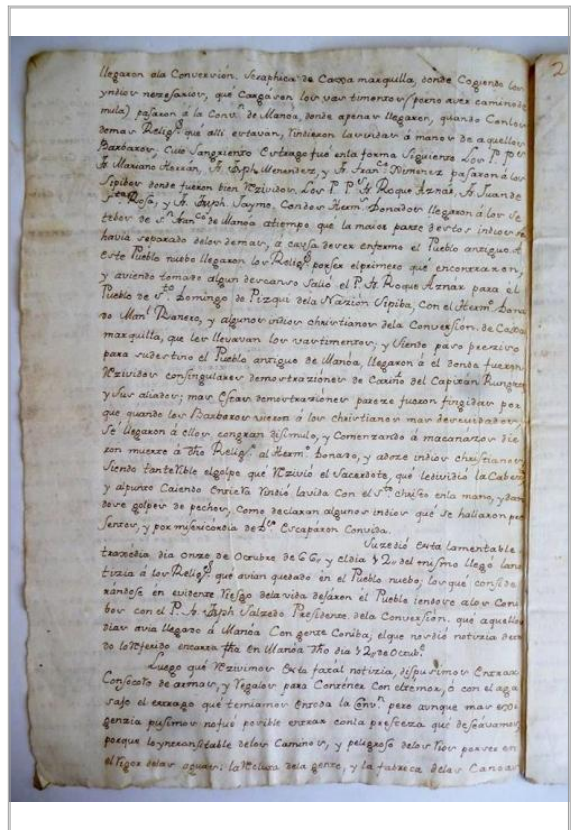 llegaron ala Convercion Seraphica de Caxa marquilla, donde Cogiendo los
yndios nezesarios, que cargásen los vastimentos (porno aver caminode
mula) pasáron á la Conv.n de Manoa, donde apenas llegaren, quando Conlos
demas Relig.s que alli estavan, rindieron lavidas á manos de aquellos
Barbaros, Cuio Sangriento Estrago fué enla forma Siguiente Los P.P.
Fr. Mariano Herrán, Fr. Jph Menendez, y Fr. Fran.co Ximenez pasáron á los
Sipibos donde fueron bien Rezividos. Los P. P. Fr. Roque Aznár, Fr. Juan de
S.ta Rosa, y Fr. Jph Jayme, Condos Herm.s Donados llegaron á los Se
tebos de S.n Fran.co de Manoa atiempo que la maior parte destos indios se
havia separado delos demas, á causa dever enfermo el Pueblo antiguo. A
Este Pueblo nuebo llegaron los Relig.s porser elprimero que encontraron,
y aviendo tomado algun descanso Salió el P. Fr. Roque Aznár para el
Pueblo de S.to Domingo de Pizqui dela Nazión Sipiba, Con el Herm.o Dona
do Man.l Panero, y algunos indios christianos dela Conversion de Caxa
marquilla, que les llevavan los vastimentos; y Siendo paso prezizo
para sudestino el Pueblo antiguo de Manóa, llegaron á él donde fueron
Rezividos consingulares demostraziónes de Cariño del Capitan Rungato
y Sus aliados; mas Estas demostraziónes pareze fueron fingidas por
que quando los Barbaros vieron á los christianos mas descuidados
Sé llegaron á ellos, congran disimulo, y Comenzando á macanazos die
ron muerte á dho Relig.o al Herm.o Donado, y adoze indios christianos
Siendo tanterrible elgolpe qué Rezivió el Sacerdote, qué ledividió la Cabeza
y alpunto Caiendo Entierra Rindió lavida Con el S.to christo enla mano, ydan
dose golpes de pechos, Como declaran algunos indios qué se hallaron pre
sentes, y por misericordia de D.s Escapáron Convida.
Suzedió Esta lamentable
traxedia dia Onze de Octubre de 66, y eldia 12 del mismo llego lano
tizia á los Relig.s que avian quedado en el Pueblo nuebo; los qué conside
rándose en evidente Riesgo delavida dejáron el Pueblo iendose alos Coni
bos con el P. Fr. Jph Salzedo Presidente dela Conversion, qué aquellos
dias avia llegado á Manoa Con gente Coniba, elque nosdió notizia deto
do loReferido encarta fha en Manóa dho dia 12 de Octub.e
Luego qué Rezivimos Esta fatál notizia, dispusimos Entrar
Consocorro de armas, y Regalos para Contener Con eltemor, ó con el aga
sajo el estrago qué temiamos Entoda la Conv.n pero aunque mas exi
genzia pusimos nofué posible entrar conla presteza qué deseávamos,
porque lo yntransitable delos Caminos, y peligroso delos Rios porser en
elRigor delas aguas: la Releuta dela gente, y la fabrica delas Canoas
2